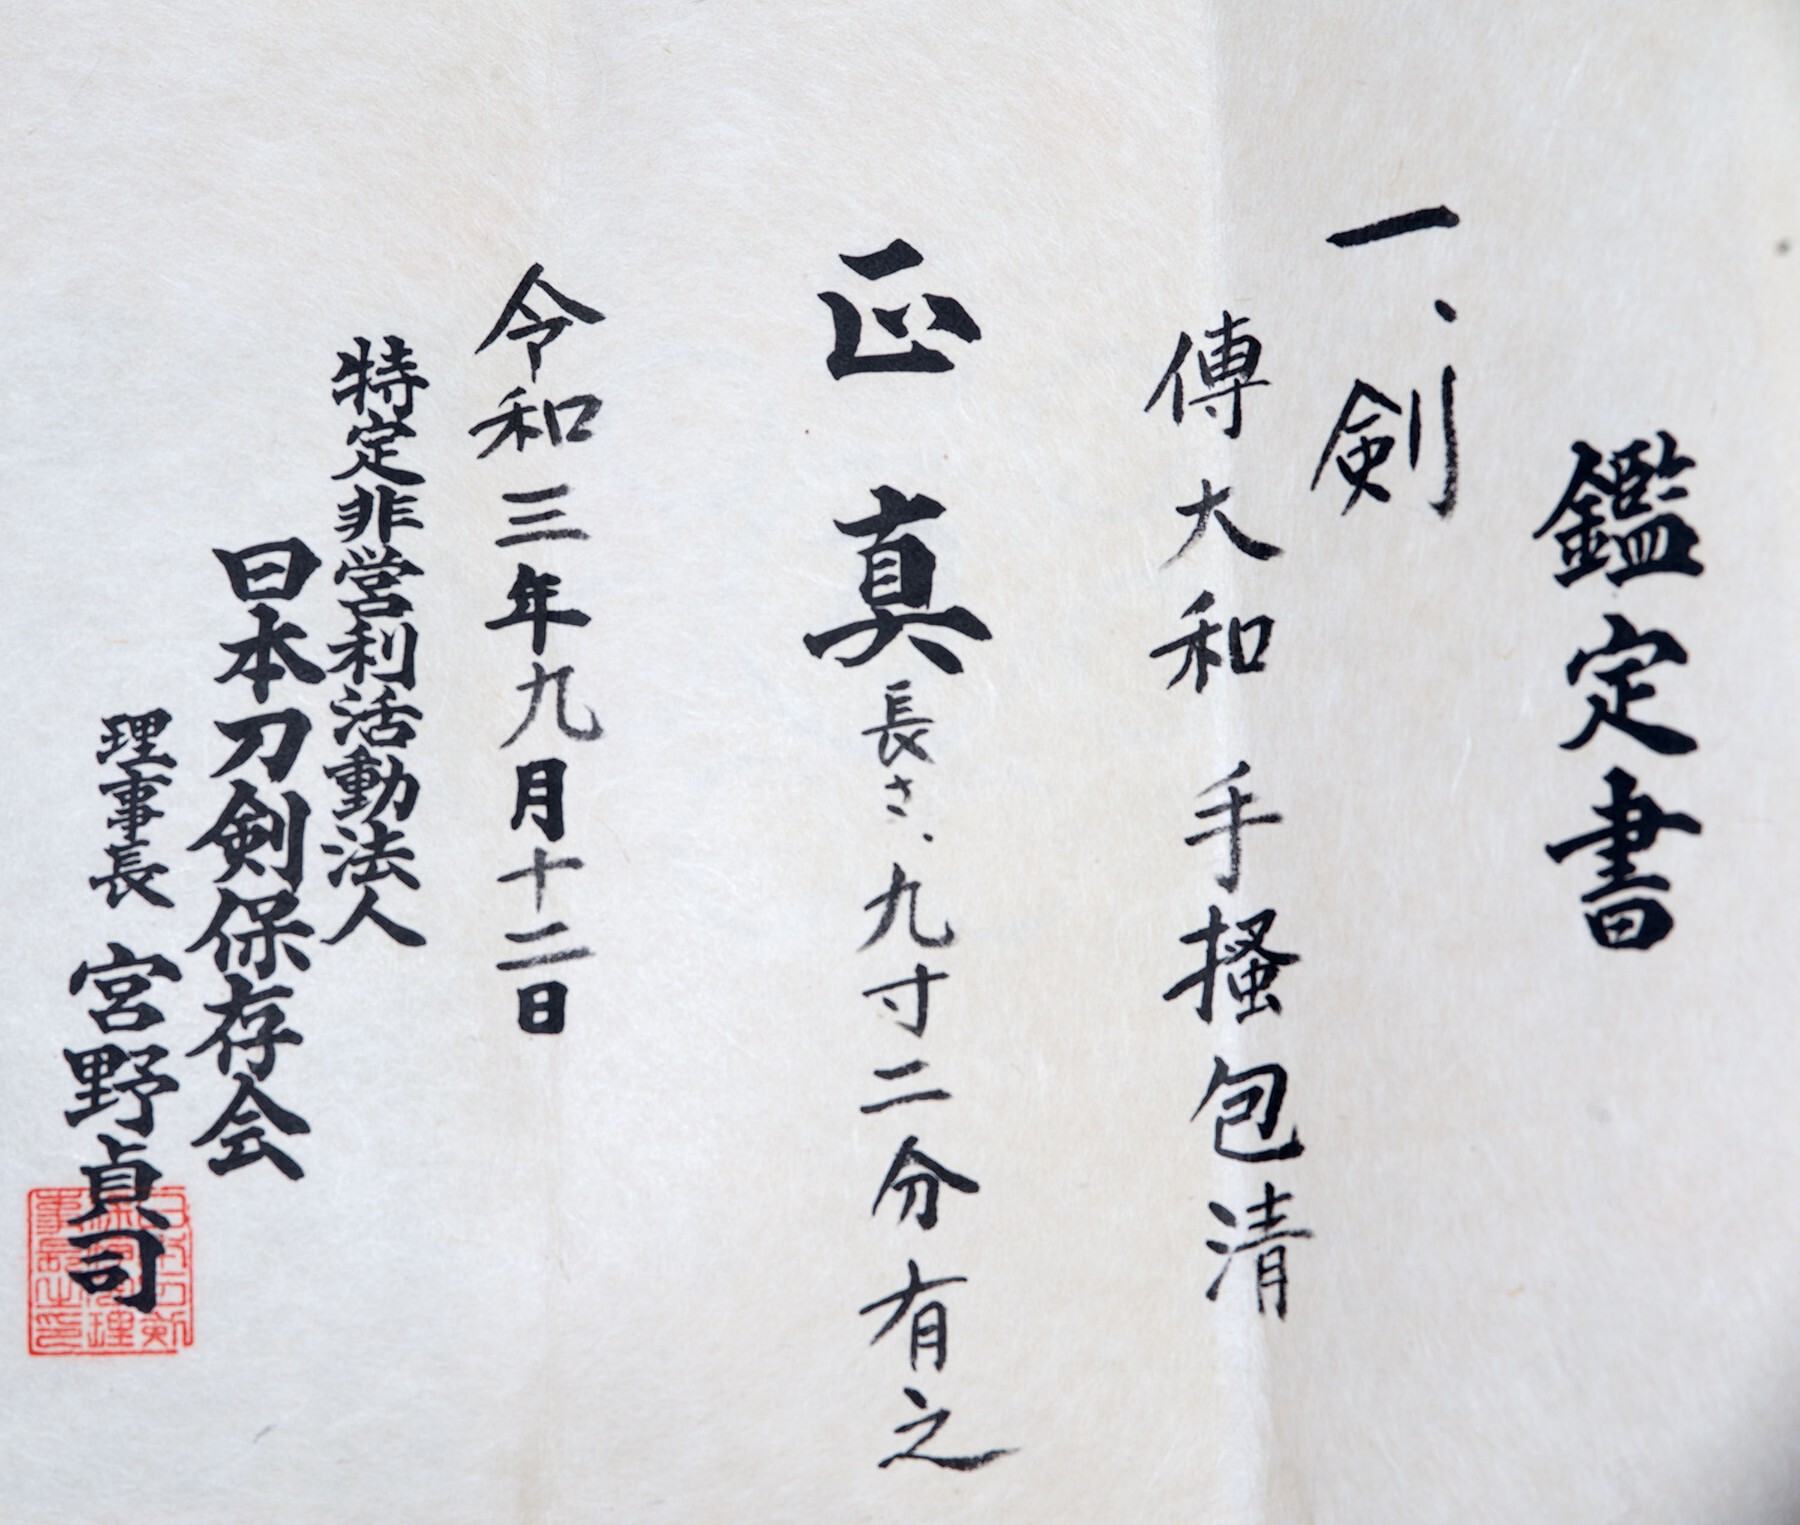 鑑定書
一、剣
傳大和手掻包清
正真長さ、九寸二分有之
令和三年九月十二日
特定非営利活動法人
日本刀剣保存会
理事長 宮野貞司